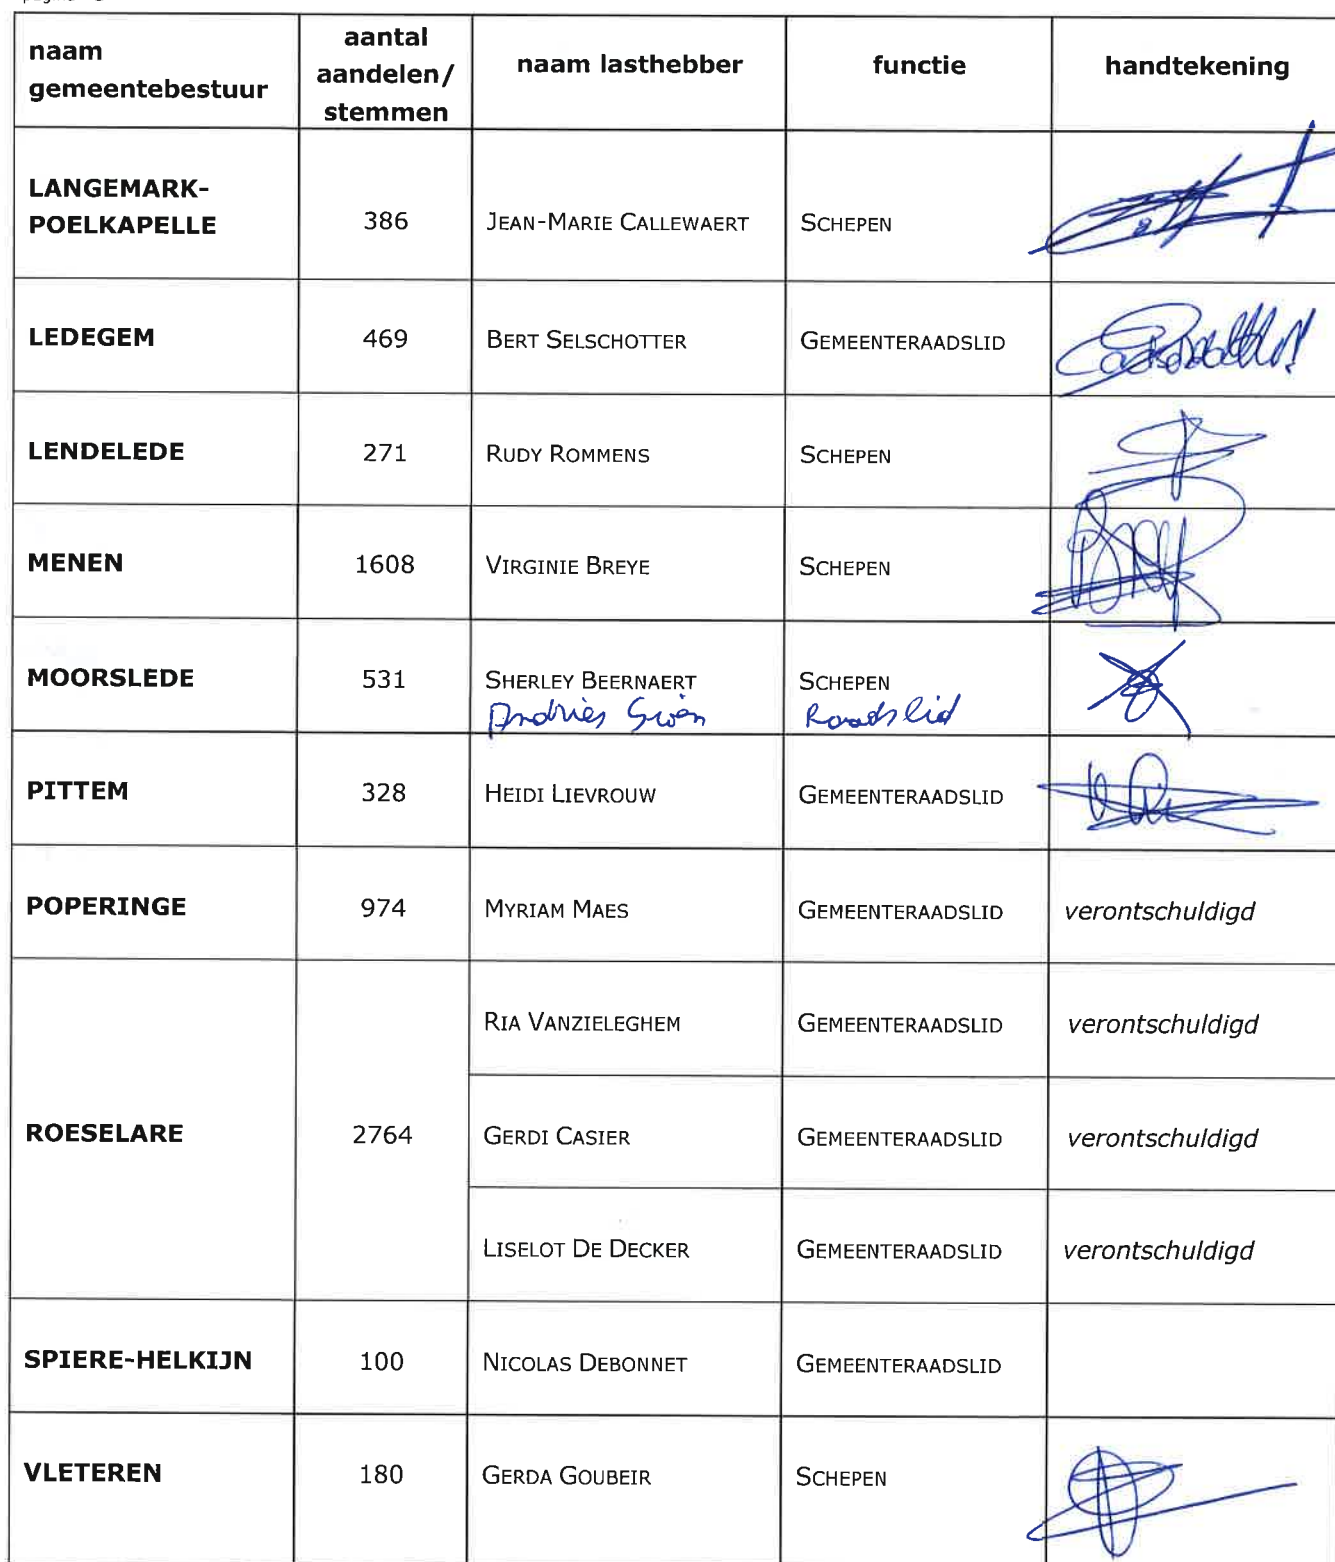 naam gemeentebestuur | aantal aandelen/ stemmen | naam lasthebber | functie | handtekening
LANGEMARK-POELKAPELLE | 386 | JEAN-MARIE CALLEWAERT | SCHEPEN
LEDEGEM | 469 | BERT SELSCHOTTER | GEMEENTERAADSLID
LENDELEDE | 271 | RUDY ROMMENS | SCHEPEN
MENEN | 1608 | VIRGINIE BREYE | SCHEPEN
MOORSLEDE | 531 | SHERLEY BEERNAERT | SCHEPEN
Andries | Raadslid
PITTEM | 328 | HEIDI LIEVROUW | GEMEENTERAADSLID
POPERINGE | 974 | MYRIAM MAES | GEMEENTERAADSLID | verontschuldigd
ROESELARE | 2764 | RIA VANZIELEGHEM | GEMEENTERAADSLID | verontschuldigd
GERDI CASIER | GEMEENTERAADSLID | verontschuldigd
LISELOT DE DECKER | GEMEENTERAADSLID | verontschuldigd
SPIERE-HELKIJN | 100 | NICOLAS DEBONNET | GEMEENTERAADSLID
VLETEREN | 180 | GERDA GOUBEIR | SCHEPEN